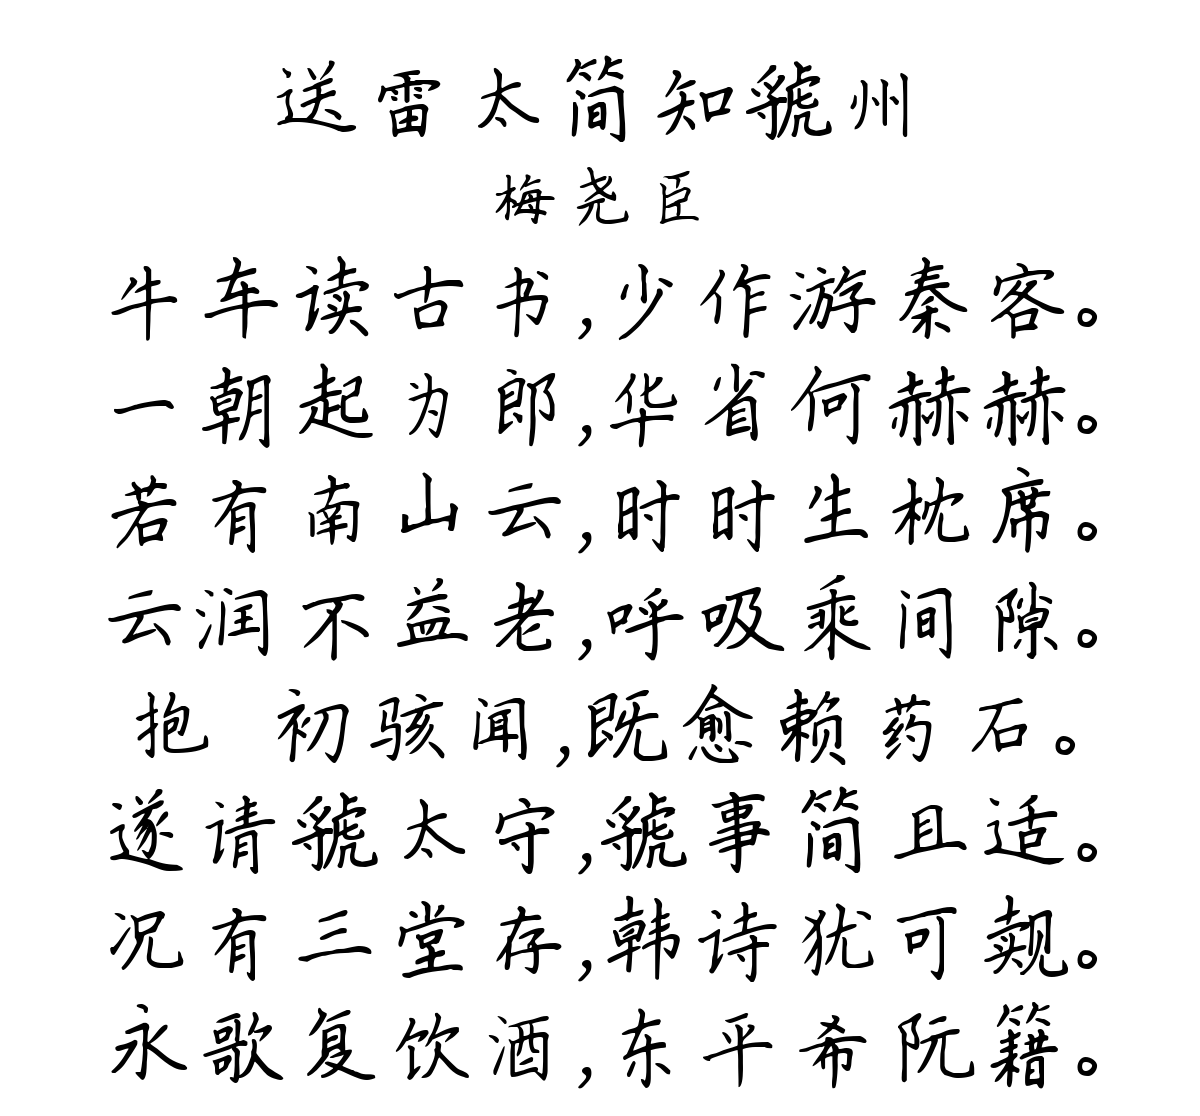 送雷太简知虢州
梅尧臣
牛车读古书,少作游秦客。
一朝起为郎,华省何赫赫。
若有南山云,时时生枕席。
云润不益老,呼吸乘间隙。
抱 初骇闻,既愈赖药石。
遂请虢太守,虢事简且适。
况有三堂存,韩诗犹可觌。
永歌复饮酒,东平希阮籍。